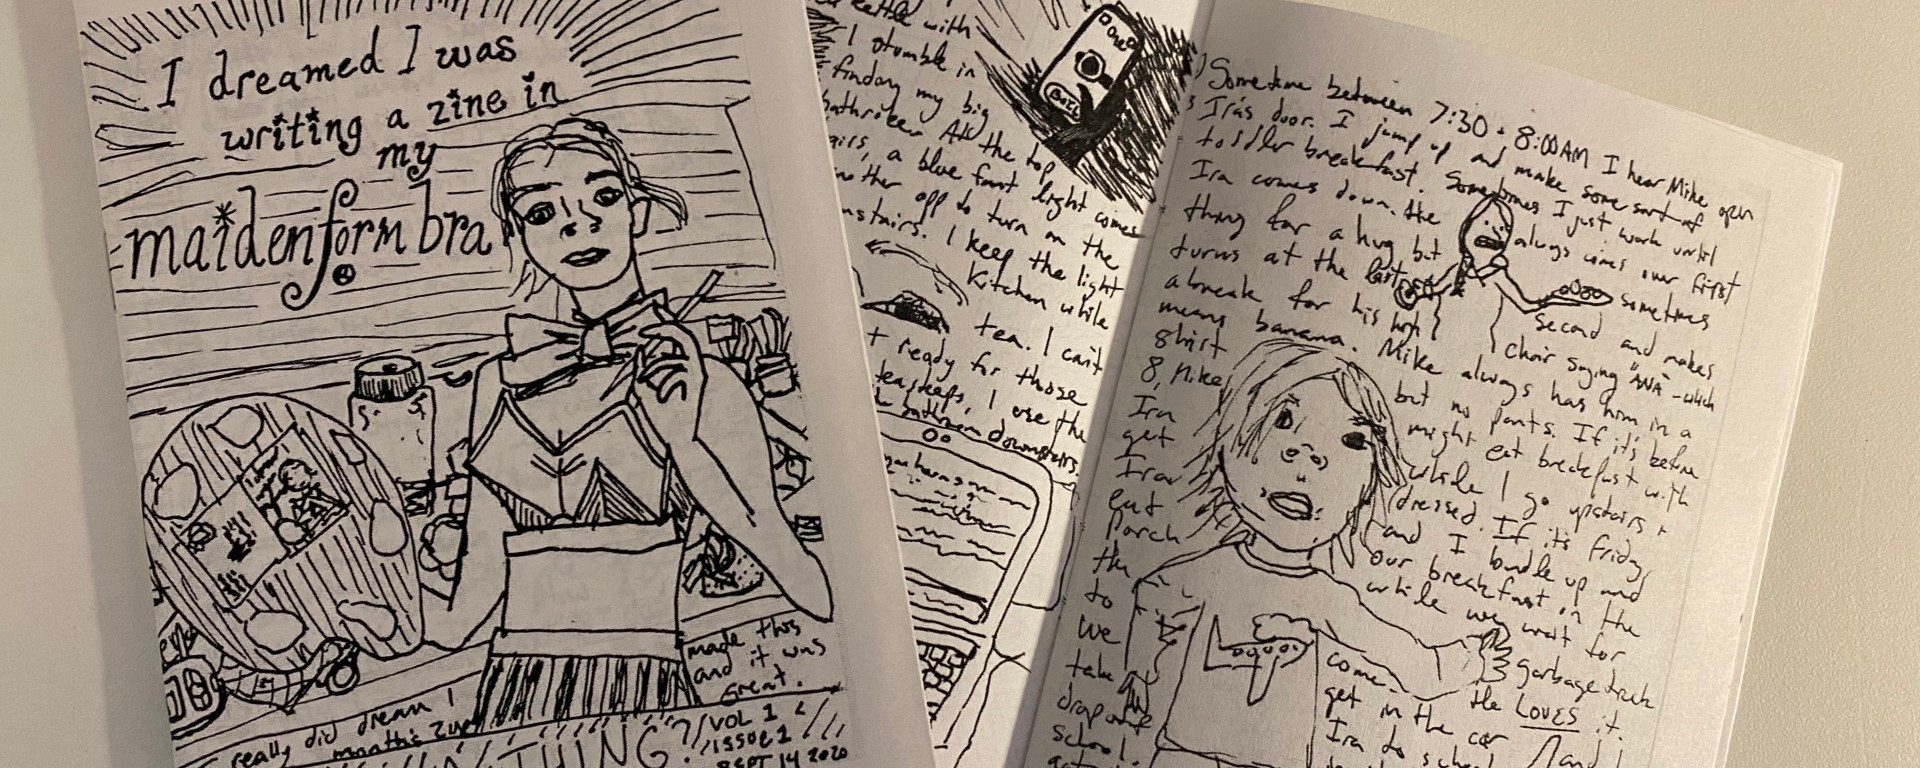 I dreamed I was
writing a zine in
my
maidenform bra
made this
and it was
Great.
really did dream I
month's zine
THING?
VOL 1
ISSUE 1
SEPT 14 2020
kettle with
I stumble in
finding my big
bathrobe. At the top
airs, a blue faint light comes
another off to turn on the
nstairs. I keep the light
Kitchen while
tea. I can't
t ready for those
tea steeps, I use the
bathroom downstairs.
Sometime between 7:30 + 8:00 AM I hear Mike open
Ira's door. I jump up and make some sort of
toddler breakfast. Sometimes I just work until
Ira comes down. He always comes over first
thing for a hug but sometimes
turns at the last second and makes
a break for his high chair saying "ANA" - which
means banana. Mike always has him in a
shirt but no pants. If it's before
8, Mike might eat breakfast with
Ira while I go upstairs +
get dressed. If it's Friday,
Ira and I bundle up and
eat our breakfast on the
porch while we wait for
the garbage truck
to come. He LOVES it.
we get in the car and I
take Ira to school
drop
school.